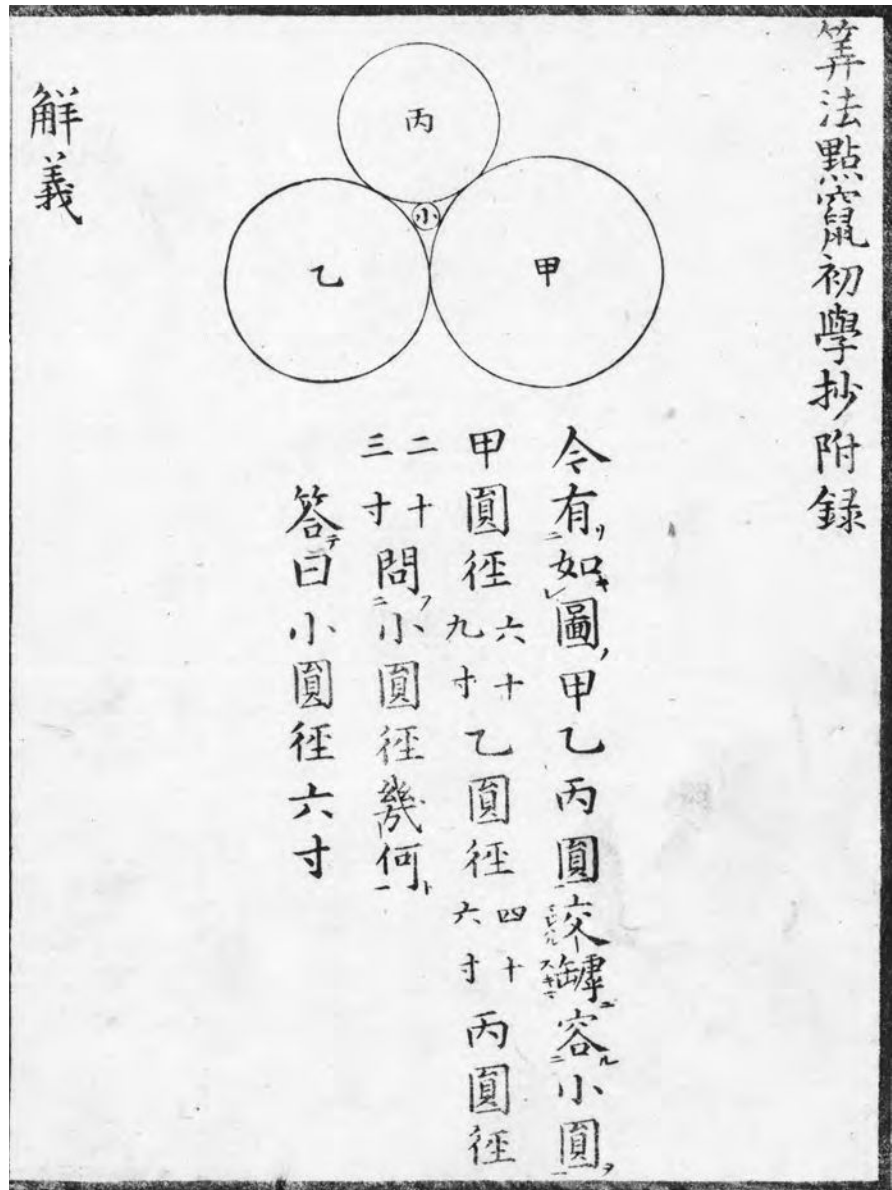 筭法點竄初學抄附録
丙
小
乙
甲
今有如圖甲乙丙圓交罅容小圓
甲圓徑六十九寸乙圓徑四十六寸丙圓徑
二十三寸問小圓徑幾何
答曰小圓徑六寸
解義